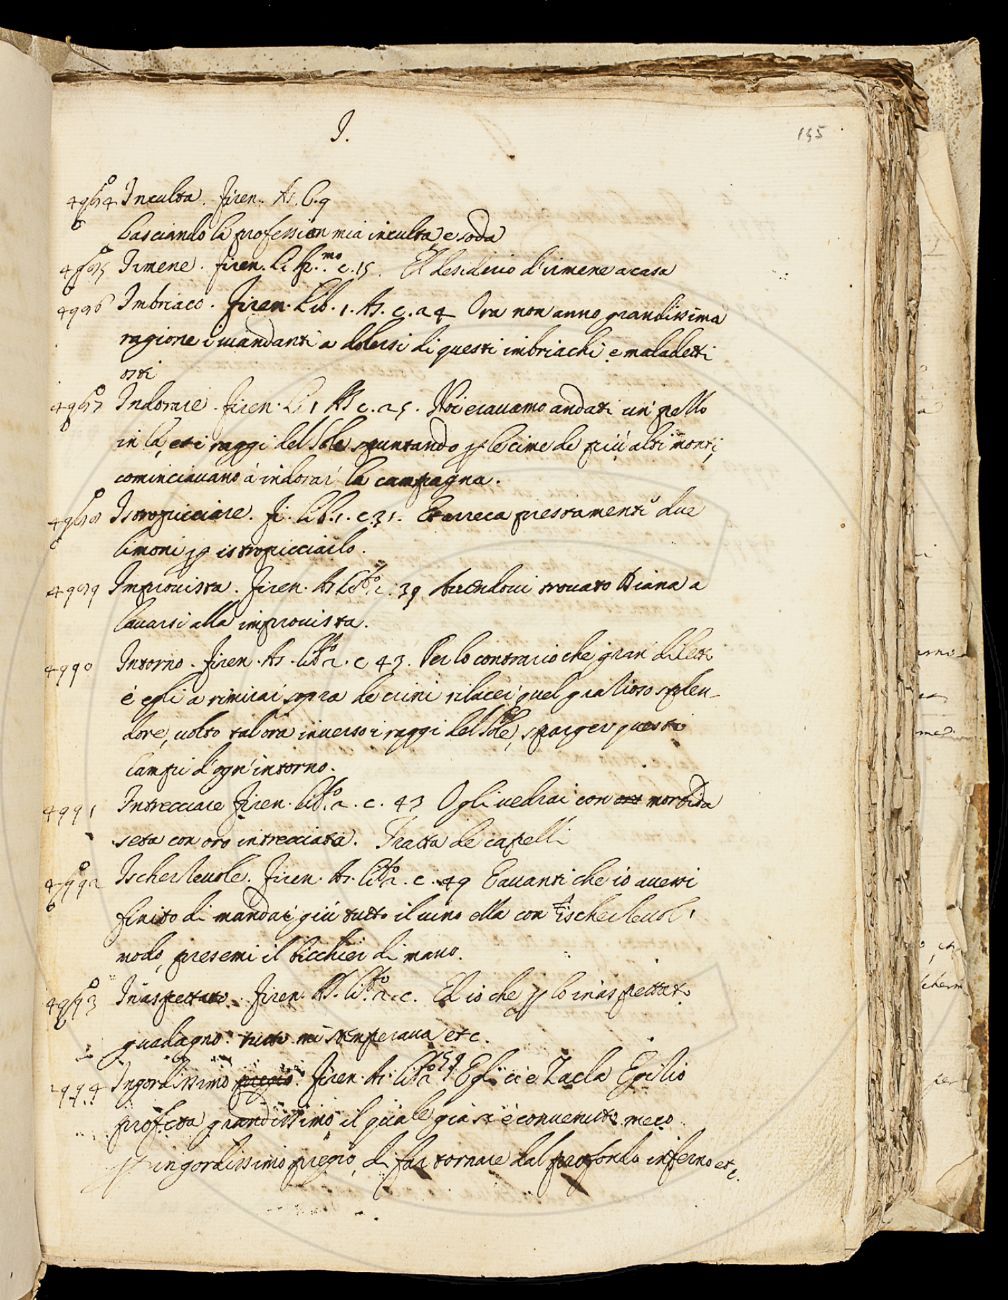 I.
155
4984 Inculta. Firen. As. l. 9
lasciando la profession mia inculta, e soda
4985 Irmene. Firen. li. p.mo c. 15. El desiderio d'irmene a casa
4986 Imbriaco. Firen. Lib. 1. As. c. 24 Ora non anno grandissima
ragione i viandanti a dolersi di questi imbriachi e maladetti
osti
4987 Indorare. Firen. li 1 As c. 25. Noi eravamo andati un pezzo
in là, et i raggi del Sole spuntando p le cime de più alti monti,
cominciavano à indorar la campagna.
4988 Istropicciare. Fi. lib. 1. c 31. Et arreca prestamente due
limoni p istropicciarlo.
4989 Improvista. Firen. As lib.o 2. c. 39 Avendovi trovato Diana a
lavarsi alla improvista.
4990 Intorno. Firen. As. lib.o 2. c 43. Per lo contrario che gran diletto
è egli a rimirar sopra de crini rilucer quel grazioso splen-
dore, volto talora inverso i raggi del Sole, sparger questi
campi d'ogn'intorno.
4991 Intrecciare Firen. lib.o 2. c. 43 O gli vedrai con morbida
seta con oro intrecciata. Tratta de capelli
4992 Ischerzevole. Firen. As. lib.o 2. c. 49 E avanti che io avessi
finito di mandar giù tutto il vino ella con ischerzevol
modo, presemi il bicchier di mano.
4993 Inaspettato. Firen. As. lib.o 2. c. Ed io che p lo inaspettato
guadagno tutto mi stemperava etc.
4994 Ingordissimo pregio. Firen. As. lib.o 2 59 Egli ci è Zacla Egizio
profeta grandissimo il quale già s'è convenuto meco
p ingordissimo pregio, di far tornare dal profondo inferno etc.